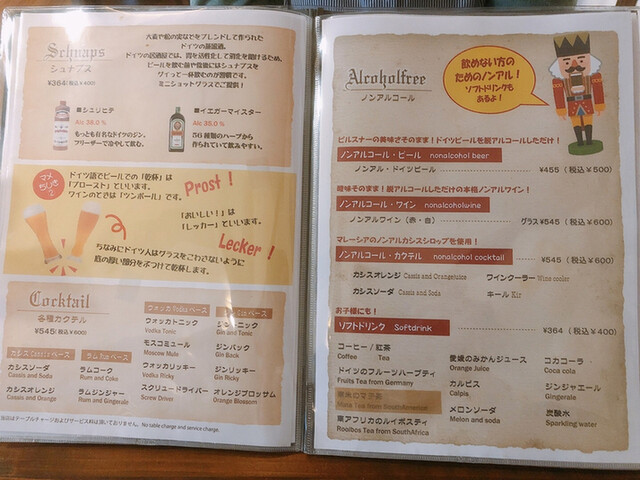 Schnaps
シュナップス
¥364(税込¥400)
ドイツの蒸留酒。
ミニショットグラスでご提供!
■シュリヒテ
Alc 38.0 %
もっとも有名なドイツのジン。
フリーザーで冷やして飲む。
■イエガーマイスター
Alc 35.0 %
56種類のハーブから
作られていて飲みやすい。
マメちしき
ドイツ語でビールでの「乾杯」は
「プロースト」といいます。
ワインのときは「ツンボール」です。
Prost !
「おいしい!」は
「レッカー」といいます。
Lecker !
ちなみにドイツ人はグラスをこわさないように
底の厚い部分をぶつけて乾杯します。
Cocktail
各種カクテル
¥545(税込¥600)
カシス Cassisベース
カシスソーダ
Cassis and Soda
カシスオレンジ
Cassis and Orange
ラム Rumベース
ラムコーク
Rum and Coke
ラムジンジャー
Rum and Gingerale
ウォッカ Vodkaベース
ウォッカトニック
Vodka Tonic
モスコミュール
Moscow Mule
ウォッカリッキー
Vodka Ricky
スクリュードライバー
Screw Driver
ジントニック
Gin and Tonic
ジンバック
Gin Back
ジンリッキー
Gin Ricky
オレンジブロッサム
Orange Blossom
当店はテーブルチャージおよびサービス料は頂いておりません。No table charge and service charge.
Alcoholfree
ノンアルコール
飲めない方の
ためのノンアル!
ソフトドリンクも
あるよ!
ピルスナーの美味さそのまま!ドイツビールを脱アルコールしただけ!
ノンアルコール・ビール nonalcohol beer
ノンアル・ドイツビール ¥455(税込¥500)
味そのまま!脱アルコールしただけの本格ノンアルワイン!
ノンアルコール・ワイン nonalcoholwine
ノンアルワイン(赤・白) グラス¥545(税込¥600)
マレーシアのノンアルカシスシロップを使用!
ノンアルコール・カクテル nonalcohol cocktail ¥545(税込¥600)
カシスオレンジ Cassis and Orangejuice
ワインクーラー Wine cooler
カシスソーダ Cassis and Soda
キール Kir
お子様にも!
ソフトドリンク Softdrink ¥364(税込¥400)
コーヒー / 紅茶
Coffee Tea
ドイツのフルーツハーブティ
Fruits Tea from Germany
南アフリカのルイボスティ
Rooibos Tea from SouthAfrica
愛媛のみかんジュース
Orange Juice
カルピス
Calpis
メロンソーダ
Melon and soda
コカコーラ
Coca cola
ジンジャエール
Gingerale
炭酸水
Sparkling water